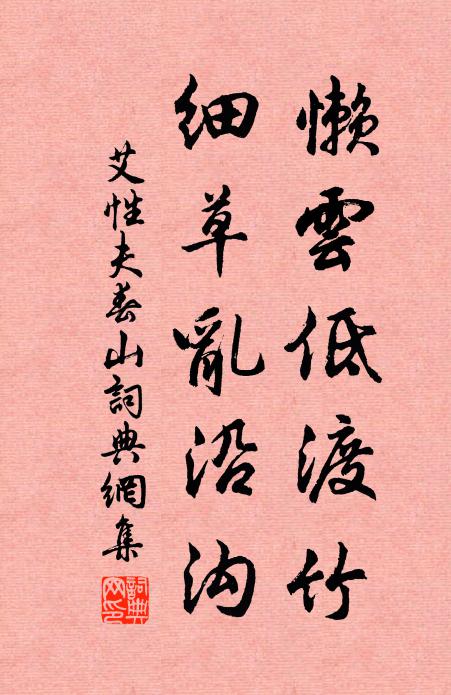 懶雲低渡竹
細草亂沿沟
艾性夫春山詞典網集
詞典网印